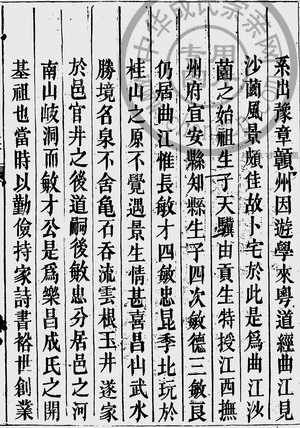 系出豫章贛州因遊學來粤道經曲江見
沙菌風景頗佳故卜宅於此是為曲江沙
菌之始祖生子天驥由貢生特授江西撫
州府宜安縣知縣生子四次敏德三敏良
仍居曲江惟長敏才四敏忠昆季北玩於
桂山之原不覺遇景生情甚喜昌山武水
勝境名泉不舍龜石吞流雲根玉井遂家
於邑官井之後道嗣後敏忠分居邑之河
南山岐洞而敏才公是為樂昌成氏之開
基祖也當時以勤儉持家詩書裕世創業
中华成氏宗亲网
专用